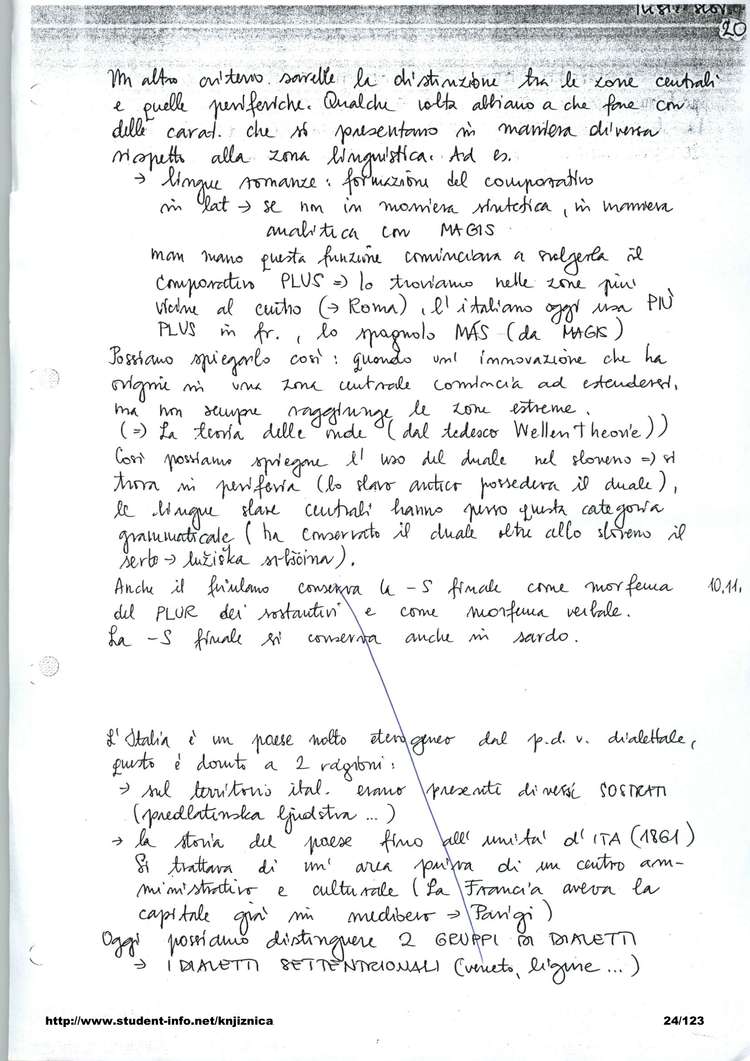 20
Un altro criterio sarebbe la distinzione tra le zone centrali
e quelle periferiche. Qualche volta abbiamo a che fare con
delle carat. che si presentano in maniera diversa
rispetto alla zona linguistica. Ad es.
→ lingue romanze: formazione del comparativo
in lat → se non in maniera sintetica, in maniera
analitica con MAGIS
man mano questa funzione cominciava a svolgerla il
comparativo PLUS => lo troviamo nelle zone più
vicine al centro (→ Roma), l'italiano oggi usa PIÙ
PLUS in fr., lo spagnolo MÁS (da MAGIS)
Possiamo spiegarlo così: quando un' innovazione che ha
origine in una zona centrale comincia ad estendersi,
ma non sempre raggiunge le zone estreme.
(=) La teoria delle onde (dal tedesco Wellen Theorie))
Così possiamo spiegare l' uso del duale nel sloveno => si
trova in periferia (lo slavo antico possedeva il duale),
le lingue slave centrali hanno perso questa categoria
grammaticale (ha conservato il duale oltre allo sloveno il
serbo → lužiška srbščina).
Anche il friulano conserva la -S finale come morfema 10.11.
del PLUR dei sostantivi e come morfema verbale.
La -S finale si conserva anche in sardo.
L'Italia è un paese molto eterogeneo dal p.d.v. dialettale,
questo è dovuto a 2 ragioni:
→ sul territorio ital. erano presenti diversi SOSTRATI
(predlatinska ljudstva ...)
→ la storia del paese fino all' unità d'ITA (1861)
Si trattava di un' area priva di un centro am-
ministrativo e culturale (La Francia aveva la
capitale già in medioevo → Parigi)
Oggi possiamo distinguere 2 GRUPPI DI DIALETTI
→ I DIALETTI SETTENTRIONALI (veneto, ligure ...)
http://www.student-info.net/knjiznica 24/123